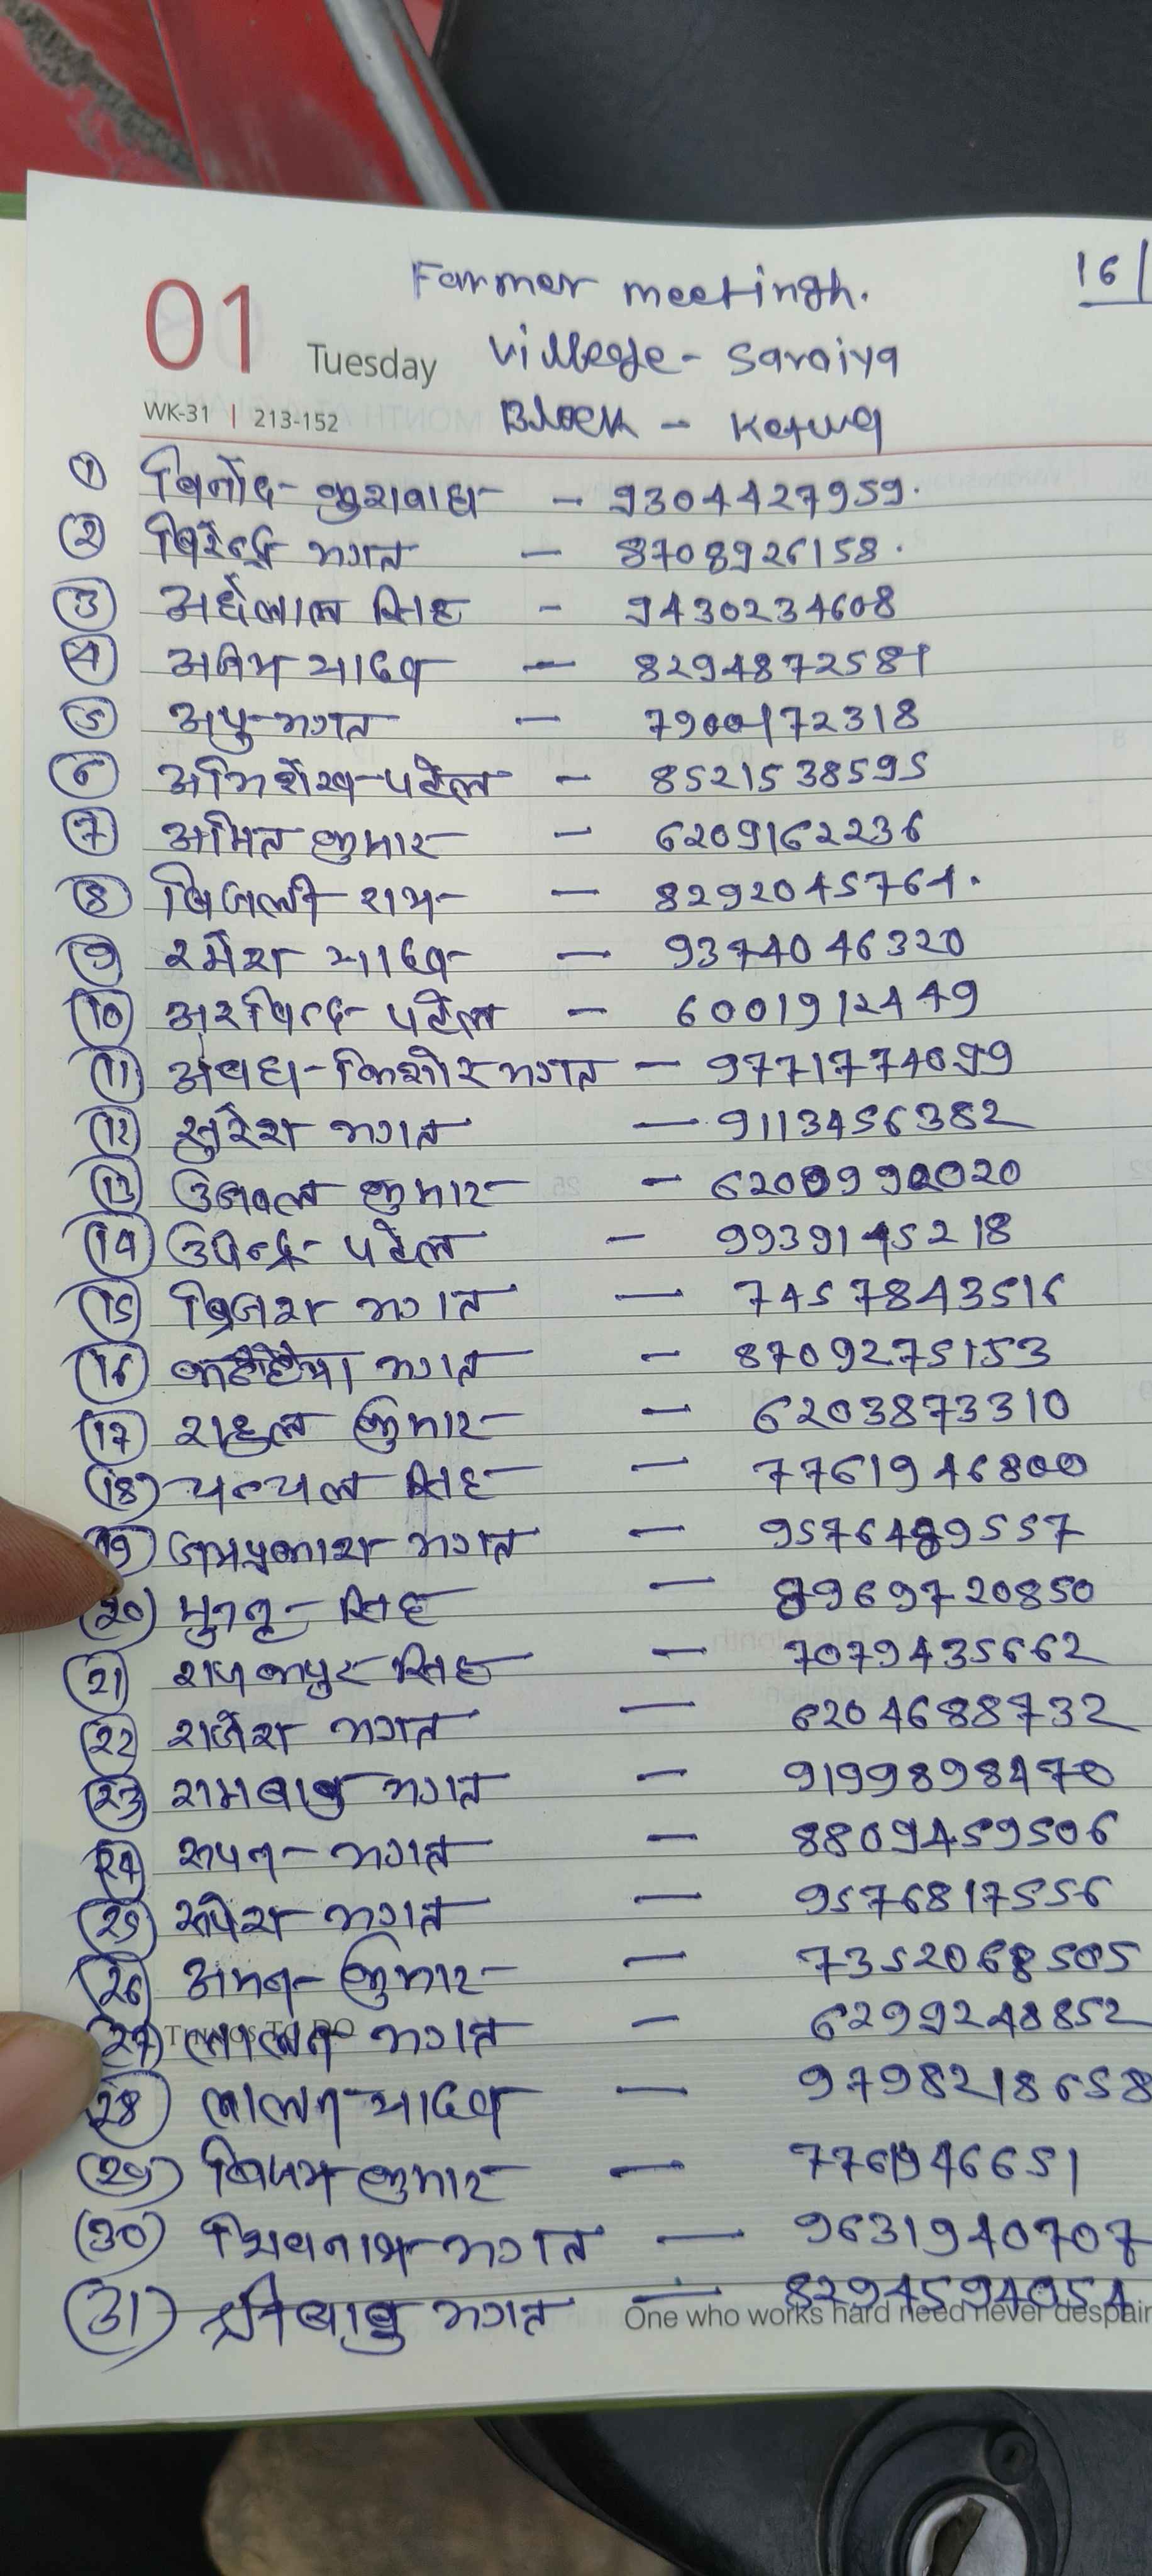 Farmer meetingh.
16/
01 Tuesday
Village - Saraiya
WK-31 | 213-152
Block -
① बिनोद कुशवाहा - 9304427959.
② बिरेन्द्र भगत - 8708926158.
③ अर्धेलाल सिंह - 9430234608
④ अजय यादव - 8294872581
⑤ अपु भगत - 7900172318
⑥ अभिशेख पटेल - 8521538595
⑦ अमित कुमार - 6209162236
⑧ बिजली राम - 8292045764.
⑨ रमेश यादव - 9374046320
⑩ अरबिन्द पटेल - 6001912449
⑪ अवध किशोर भगत - 9771774099
⑫ सुरेश भगत - 9113456382
⑬ उजवल कुमार - 6200990020
⑭ उपेन्द्र पटेल - 9939145218
⑮ ब्रिजेश भगत - 7457843516
⑯ भगत - 8709275153
⑰ राहुल कुमार - 6203873310
⑱ सिंह - 7761946800
⑲ जयप्रकाश भगत - 9576489557
⑳ सिंह - 8969720850
㉑ राजकपुर सिंह - 7079435662
㉒ राजेश भगत - 6204688732
㉓ रामबाबु भगत - 9199898470
㉔ रुपन भगत - 8809459506
㉕ रुपेश भगत - 9576817556
㉖ अमन कुमार - 7352068505
㉗ लालन भगत - 6299248852
THINGS TO DO
㉘ लालन यादव - 9798218658
㉙ बिजय कुमार - 7761946651
㉚ शिवनाथ भगत - 9631940707
㉛ श्रीबाबु भगत - 8294594054
One who works hard need never despair